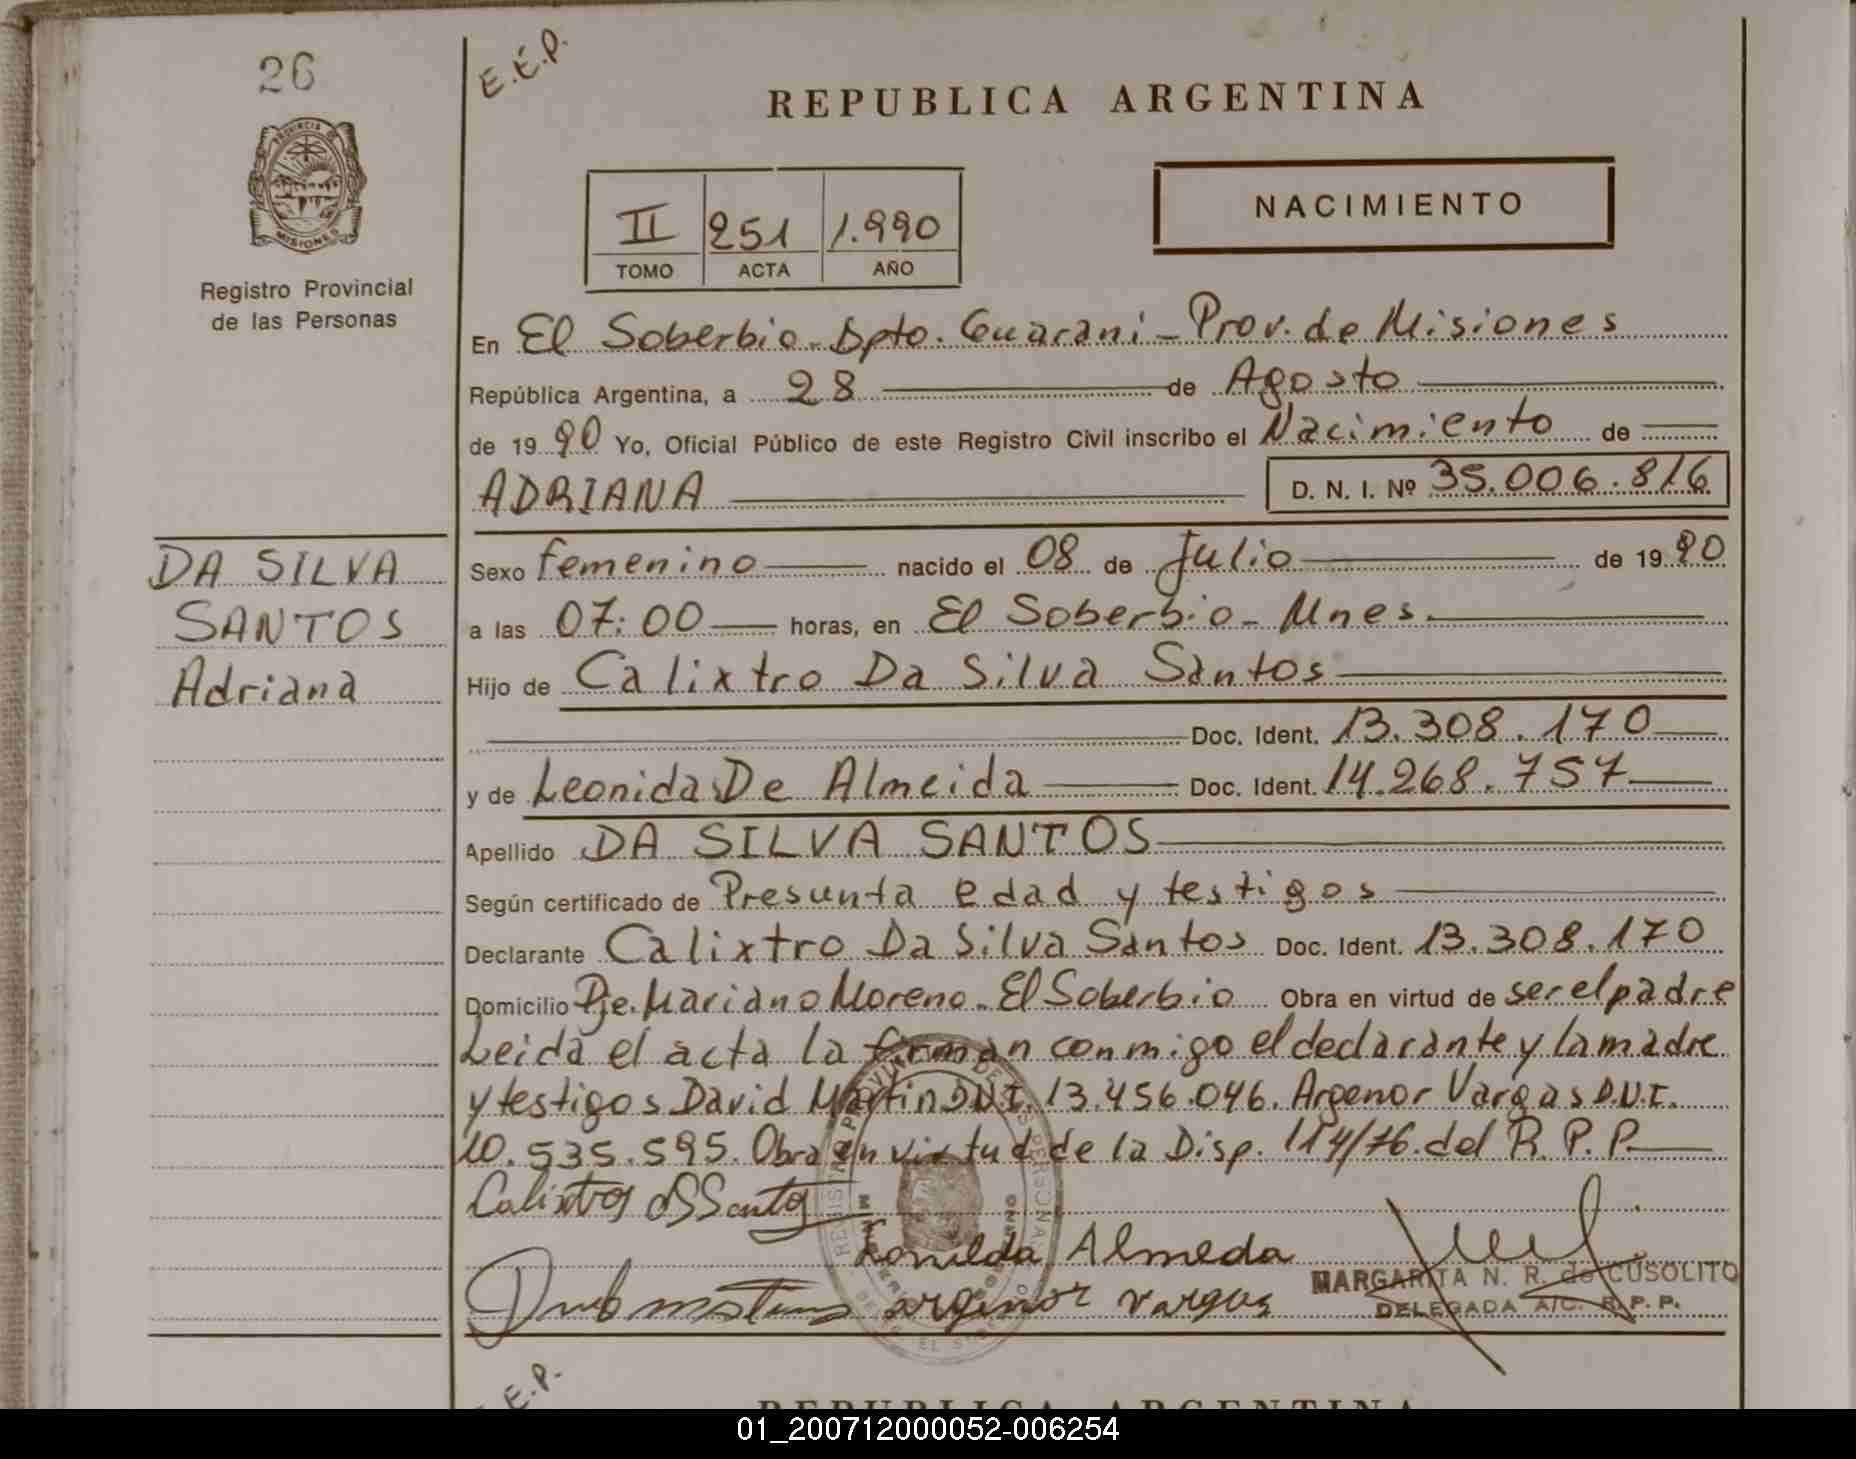 26
E.E.P.
REPUBLICA ARGENTINA
PROVINCIA DE
MISIONES
Registro Provincial
de las Personas
NACIMIENTO
II 251 1.990
TOMO ACTA AÑO
En El Soberbio - Dpto. Guarani - Prov. de Misiones
República Argentina, a 28 de Agosto
de 1990 Yo, Oficial Público de este Registro Civil inscribo el Nacimiento de
ADRIANA D. N. I. Nº 35.006.816
DA SILVA
SANTOS
Adriana
Sexo femenino nacido el 08 de Julio de 1990
a las 07:00 horas, en El Soberbio - Mnes.
Hijo de Calixtro Da Silva Santos
Doc. Ident. 13.308.170
y de Leonida De Almeida Doc. Ident. 14.268.757
Apellido DA SILVA SANTOS
Según certificado de Presunta edad y testigos
Declarante Calixtro Da Silva Santos Doc. Ident. 13.308.170
Domicilio Pje. Mariano Moreno - El Soberbio Obra en virtud de ser el padre
Leida el acta la firman conmigo el declarante y la madre
y testigos David Martin D.N.I. 13.456.046. Argenor Vargas D.N.I.
10.535.595. Obra en virtud de la Disp. 114/76 del R.P.P.
Calixtros dSSantos
Lonilda Almeda
argenor vargas
MARGARITA N. R. de CUSOLITO
DELEGADA A/C. R.P.P.
E.P.
REPUBLICA ARGENTINA
01_200712000052-006254